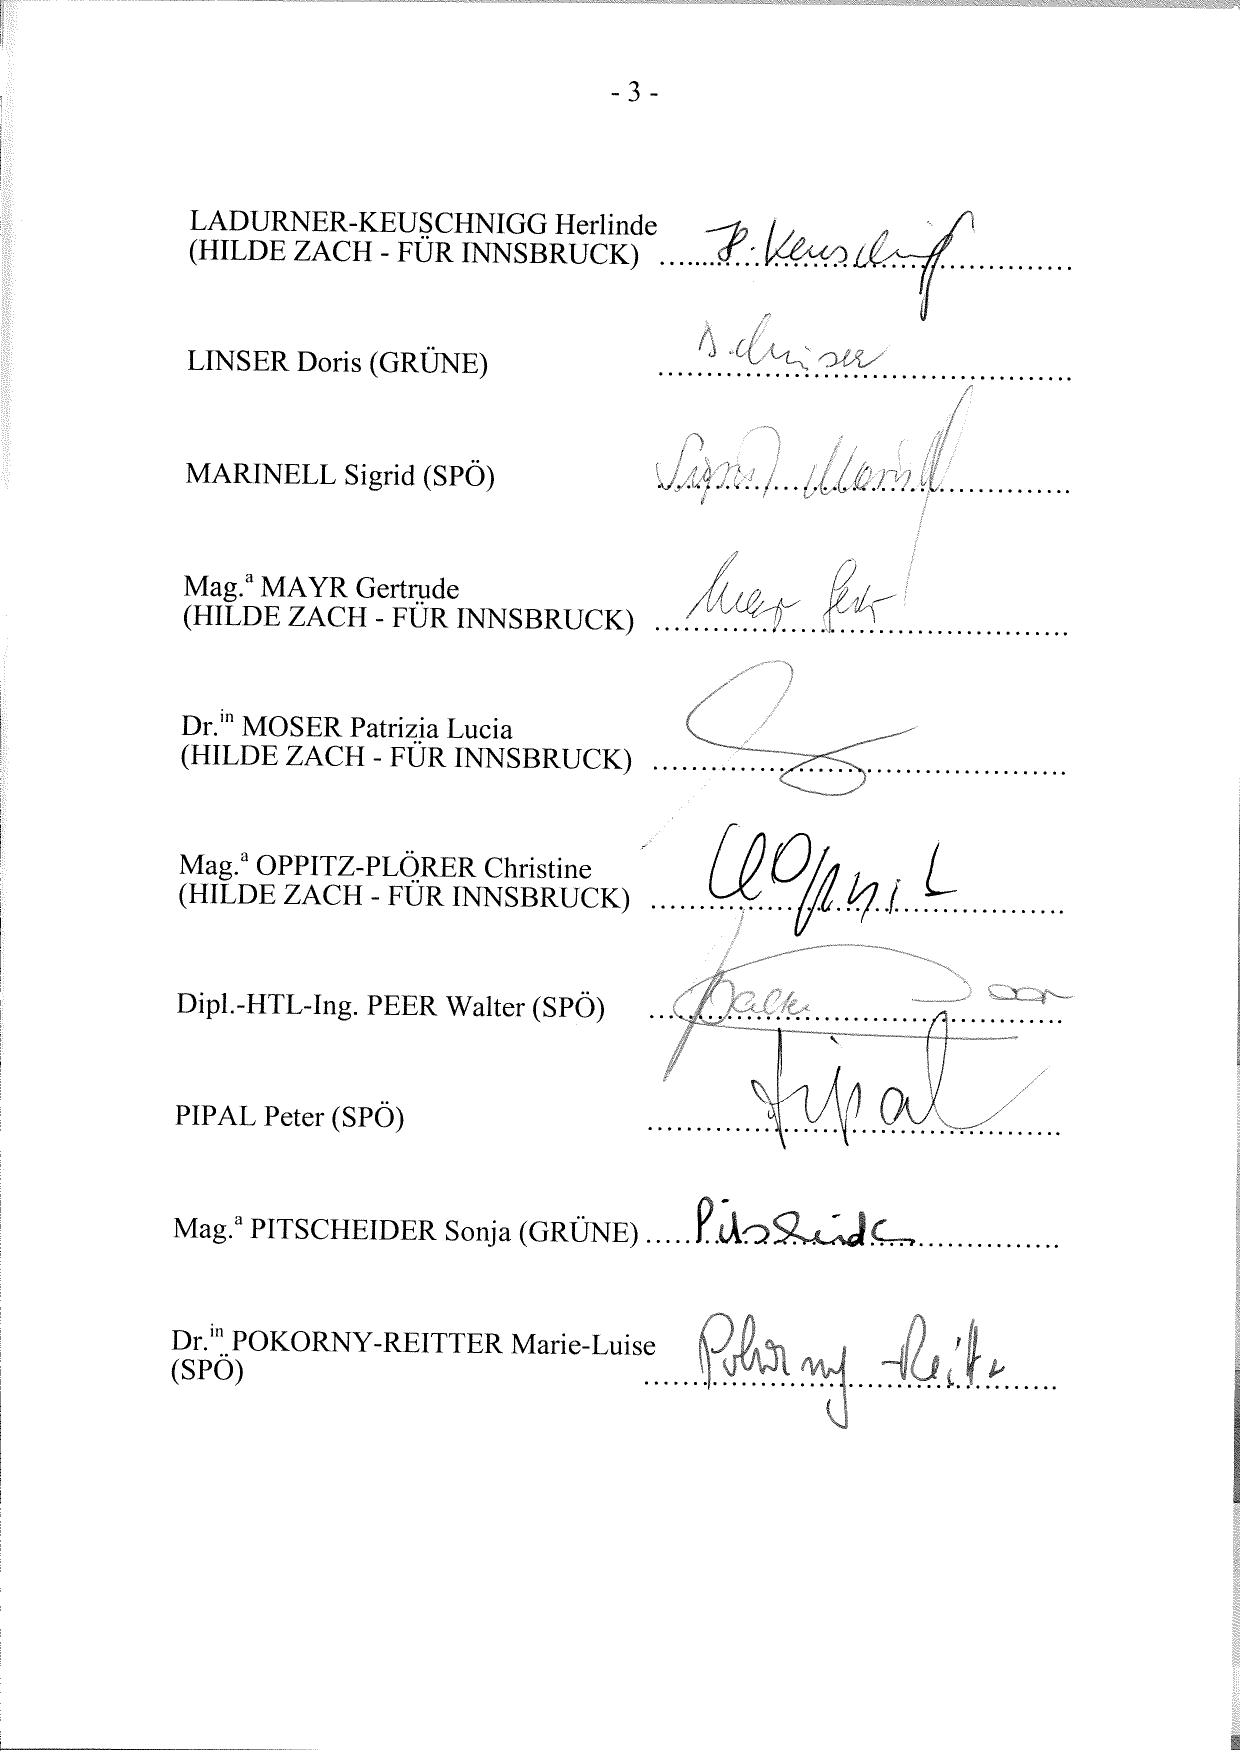 - 3 -
LADURNER-KEUSCHNIGG Herlinde
(HILDE ZACH - FÜR INNSBRUCK) .......H. Keuschnigg..............
LINSER Doris (GRÜNE) D. Linser
MARINELL Sigrid (SPÖ) Sigrid Marinell
Mag.ª MAYR Gertrude
(HILDE ZACH - FÜR INNSBRUCK) Mayr
Dr.in MOSER Patrizia Lucia
(HILDE ZACH - FÜR INNSBRUCK)
Mag.ª OPPITZ-PLÖRER Christine
(HILDE ZACH - FÜR INNSBRUCK)
Dipl.-HTL-Ing. PEER Walter (SPÖ) Walter
PIPAL Peter (SPÖ) Pipal
Mag.ª PITSCHEIDER Sonja (GRÜNE) Pitscheider
Dr.in POKORNY-REITTER Marie-Luise
(SPÖ) Pokorny-Reitter